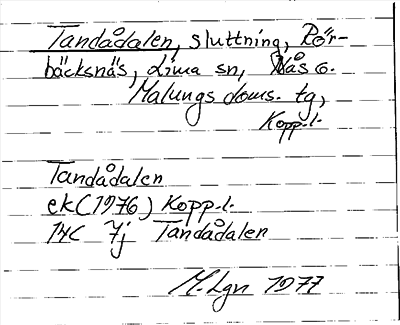 Tandådalen, sluttning, Rör-
bäcksnäs, Lima sn, Nås o.
Malungs doms. tg,
Kopp.l.
Tandådalen
ek(1976) Kopp.l.
14C 7j Tandådalen
M.Lgn 1977